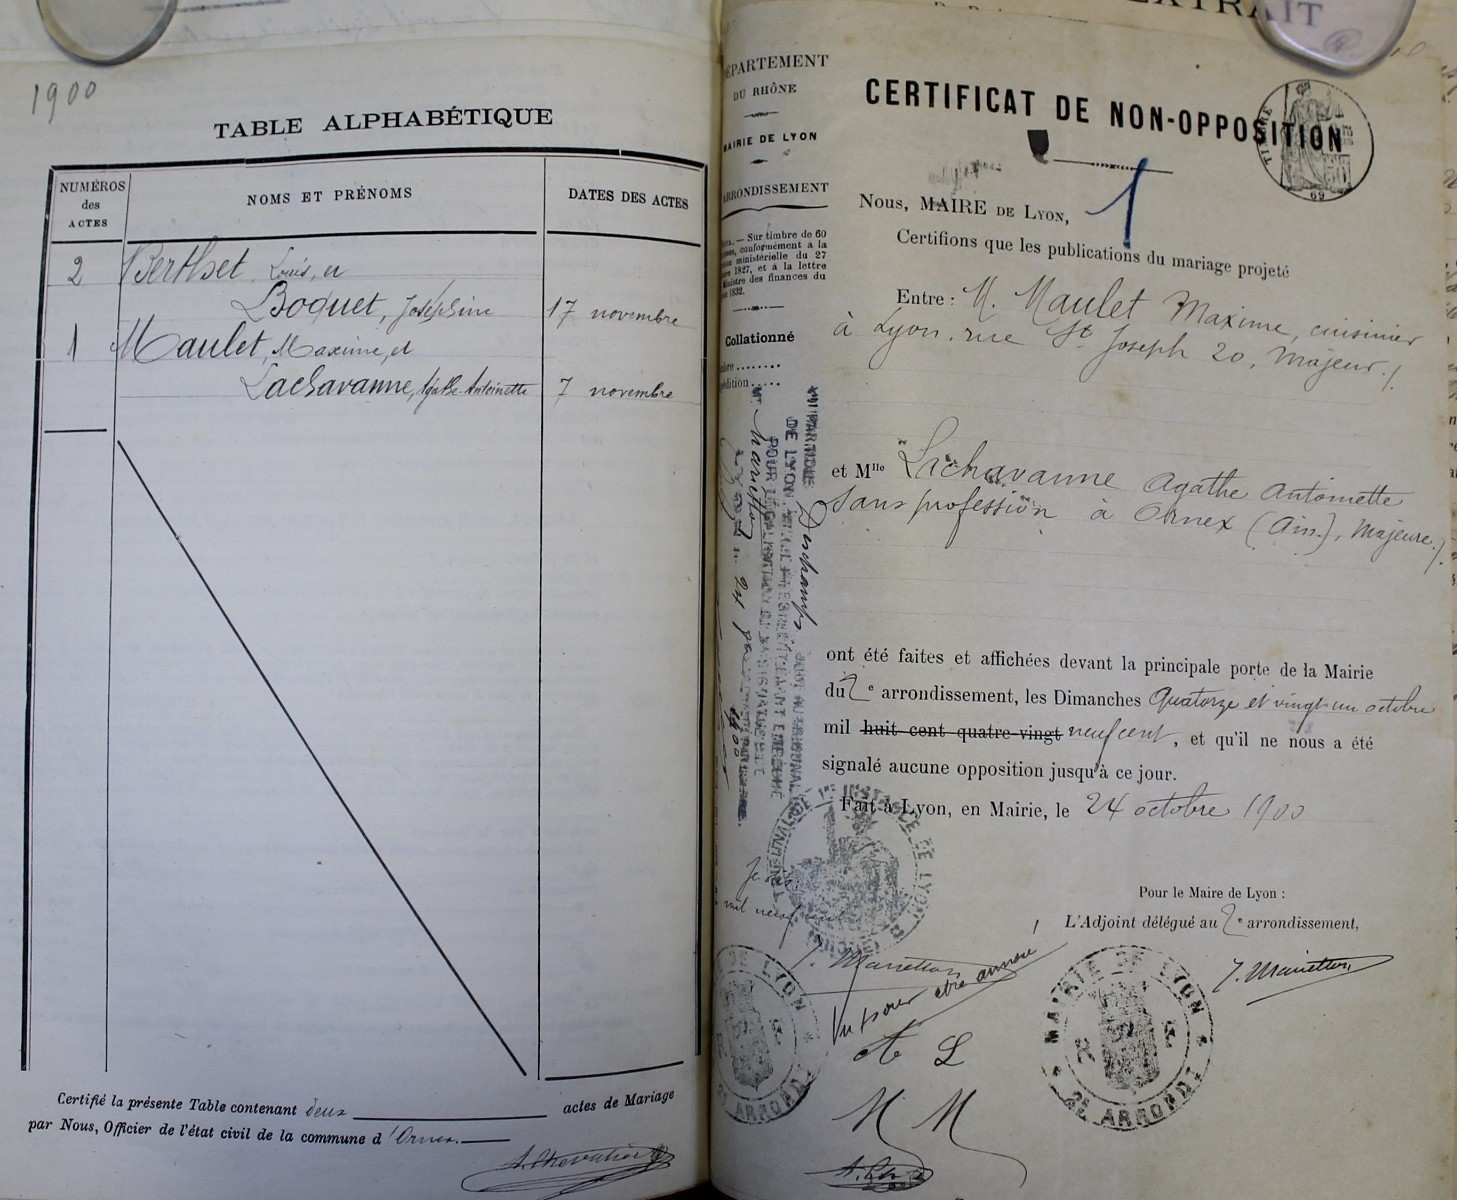 1900
TABLE ALPHABÉTIQUE
NUMÉROS des ACTES
NOMS ET PRÉNOMS
DATES DES ACTES
2 Berthet Louis, et
Boquet, Joséphine 17 novembre
1 Maulet, Maxime, et
Lachavanne, Agathe Antoinette 7 novembre
Certifié la présente Table contenant deux actes de Mariage
par Nous, Officier de l'état civil de la commune d'Ornex.
EXTRAIT
DÉPARTEMENT
DU RHÔNE
MAIRIE DE LYON
ARRONDISSEMENT
Sur timbre de 60
conformément à la
ministérielle du 27
1827, et à la lettre
Ministre des finances du
1832.
Collationné
CERTIFICAT DE NON-OPPOSITION
1
Nous, MAIRE DE LYON,
Certifions que les publications du mariage projeté
Entre : M. Maulet Maxime, cuisinier
à Lyon, rue St Joseph 20, Majeur./.
et Mlle Lachavanne Agathe Antoinette
sans profession à Ornex (Ain), Majeure./.
ont été faites et affichées devant la principale porte de la Mairie
du 2e arrondissement, les Dimanches Quatorze et vingt-un octobre
mil huit cent quatre-vingt neuf cent, et qu'il ne nous a été
signalé aucune opposition jusqu'à ce jour.
Fait à Lyon, en Mairie, le 24 octobre 1900
Pour le Maire de Lyon :
L'Adjoint délégué au 2e arrondissement,
J. Marietton
Deschamps
Marietton
J. Marietton
Vu pour être annexé
A L
M M
MAIRIE DE LYON
2E ARRONDT